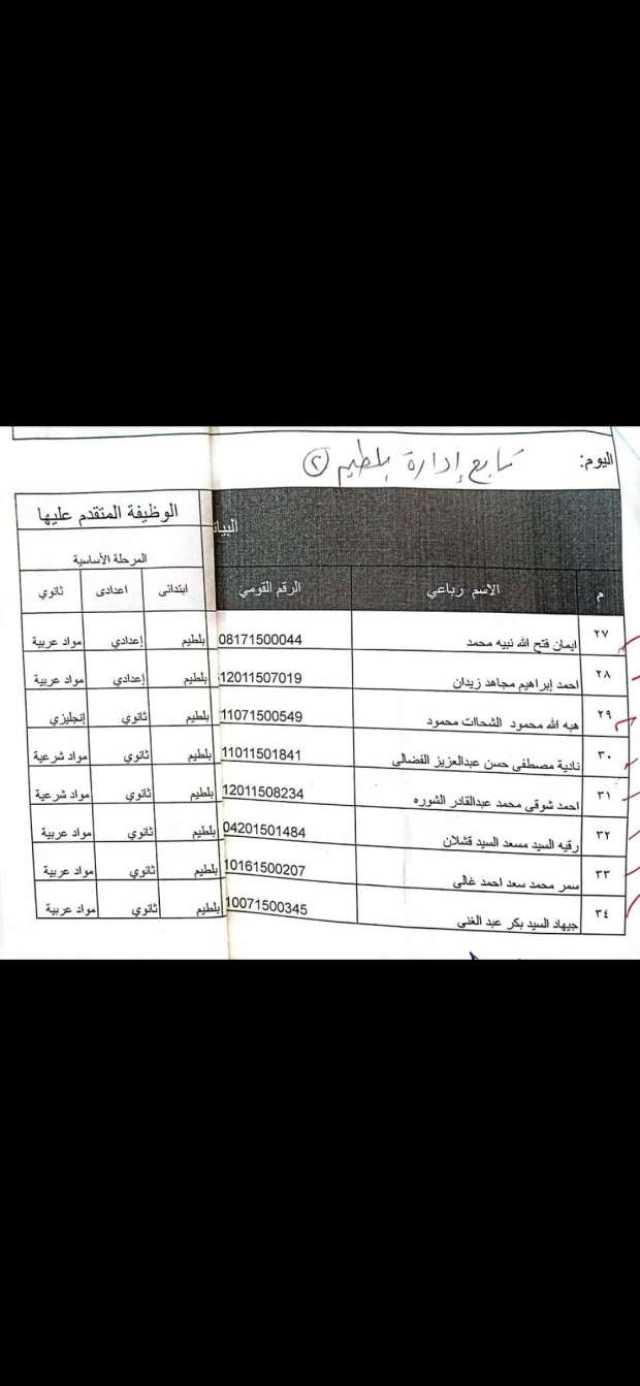 اليوم: تابع إدارة بلطيم (٢)
البيان الوظيفة المتقدم عليها
المرحلة الأساسية
م الاسم رباعي الرقم القومي ابتدائى اعدادى ثانوي
٢٧ ايمان فتح الله نبيه محمد 08171500044 بلطيم إعدادي مواد عربية
٢٨ احمد إبراهيم مجاهد زيدان 12011507019 بلطيم إعدادي مواد عربية
٢٩ هبه الله محمود الشحات محمود 11071500549 بلطيم ثانوي إنجليزي
٣٠ نادية مصطفى حسن عبدالعزيز الفضالى 11011501841 بلطيم ثانوي مواد شرعية
٣١ احمد شوقى محمد عبدالقادر الشوره 12011508234 بلطيم ثانوي مواد شرعية
٣٢ رقيه السيد مسعد السيد قشلان 04201501484 بلطيم ثانوي مواد عربية
٣٣ سمر محمد سعد احمد غالى 10161500207 بلطيم ثانوي مواد عربية
٣٤ جيهاد السيد بكر عبد الغنى 10071500345 بلطيم ثانوي مواد عربية